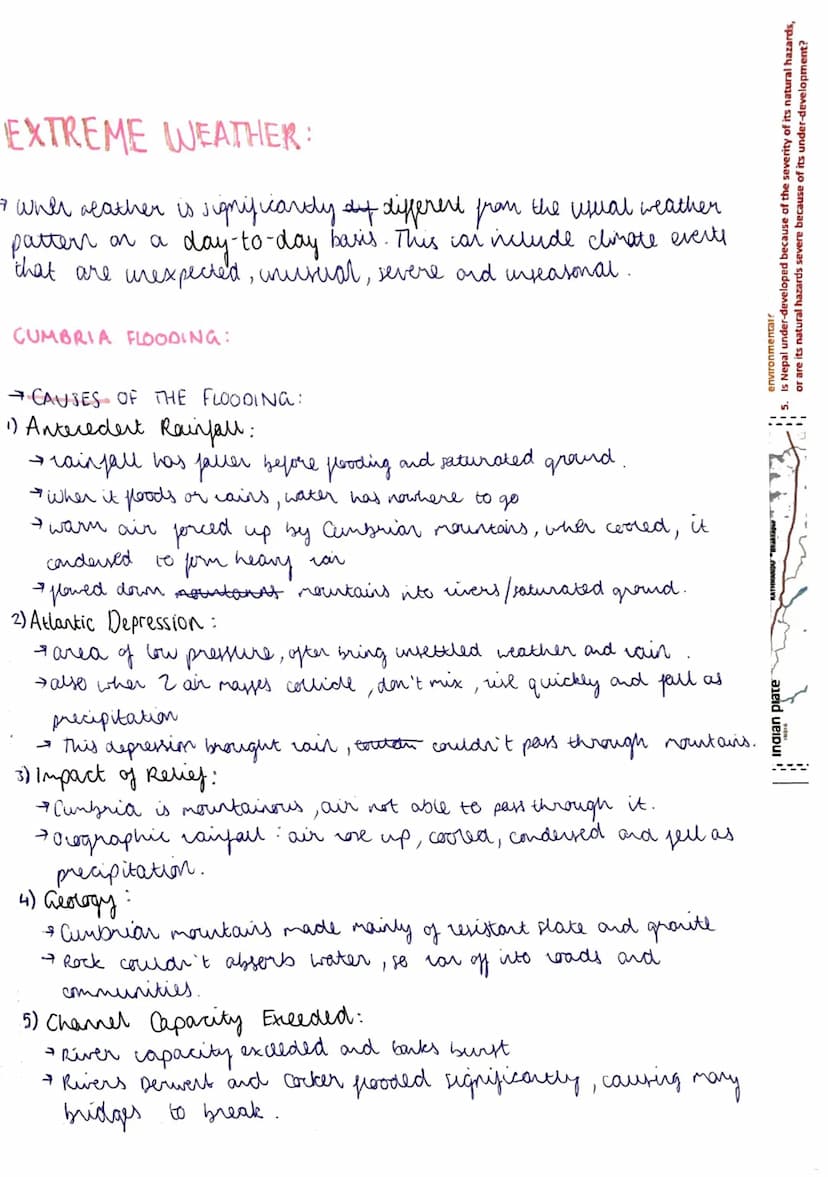 EXTREME WEATHER:
→ When weather is significantly dif different from the usual weather
pattern on a day-to-day basis. This can include climate events
that are unexpected, unusual, severe and unseasonal.
CUMBRIA FLOODING:
→ CAUSES OF THE FLOODING:
1) Antecedent Rainfall:
→ rainfall has fallen before flooding and saturated ground.
→ When it floods or rains, water has nowhere to go
→ warm air forced up by Cumbrian mountains, when cooled, it
condensed to form heavy rain
→ flowed down mountains into rivers/saturated ground.
2) Atlantic Depression:
→ area of low pressure, often bring unsettled weather and rain.
→ also when 2 air masses collide, don't mix, rise quickly and fall as
precipitation
→ This depression brought rain, couldn't pass through mountains.
3) Impact of Relief:
→ Cumbria is mountainous, air not able to pass through it.
→ Orographic rainfall: air rose up, cooled, condensed and fell as
precipitation.
4) Geology:
→ Cumbrian mountains made mainly of resistant slate and granite
→ Rock couldn't absorb water, so ran off into roads and
communities.
5) Channel Capacity Exceeded:
→ River capacity exceeded and banks burst
→ Rivers Derwent and Cocker flooded significantly, causing many
bridges to break.
environmental?
5. Is Nepal under-developed because of the severity of its natural hazards,
or are its natural hazards severe because of its under-development?
Indian plate